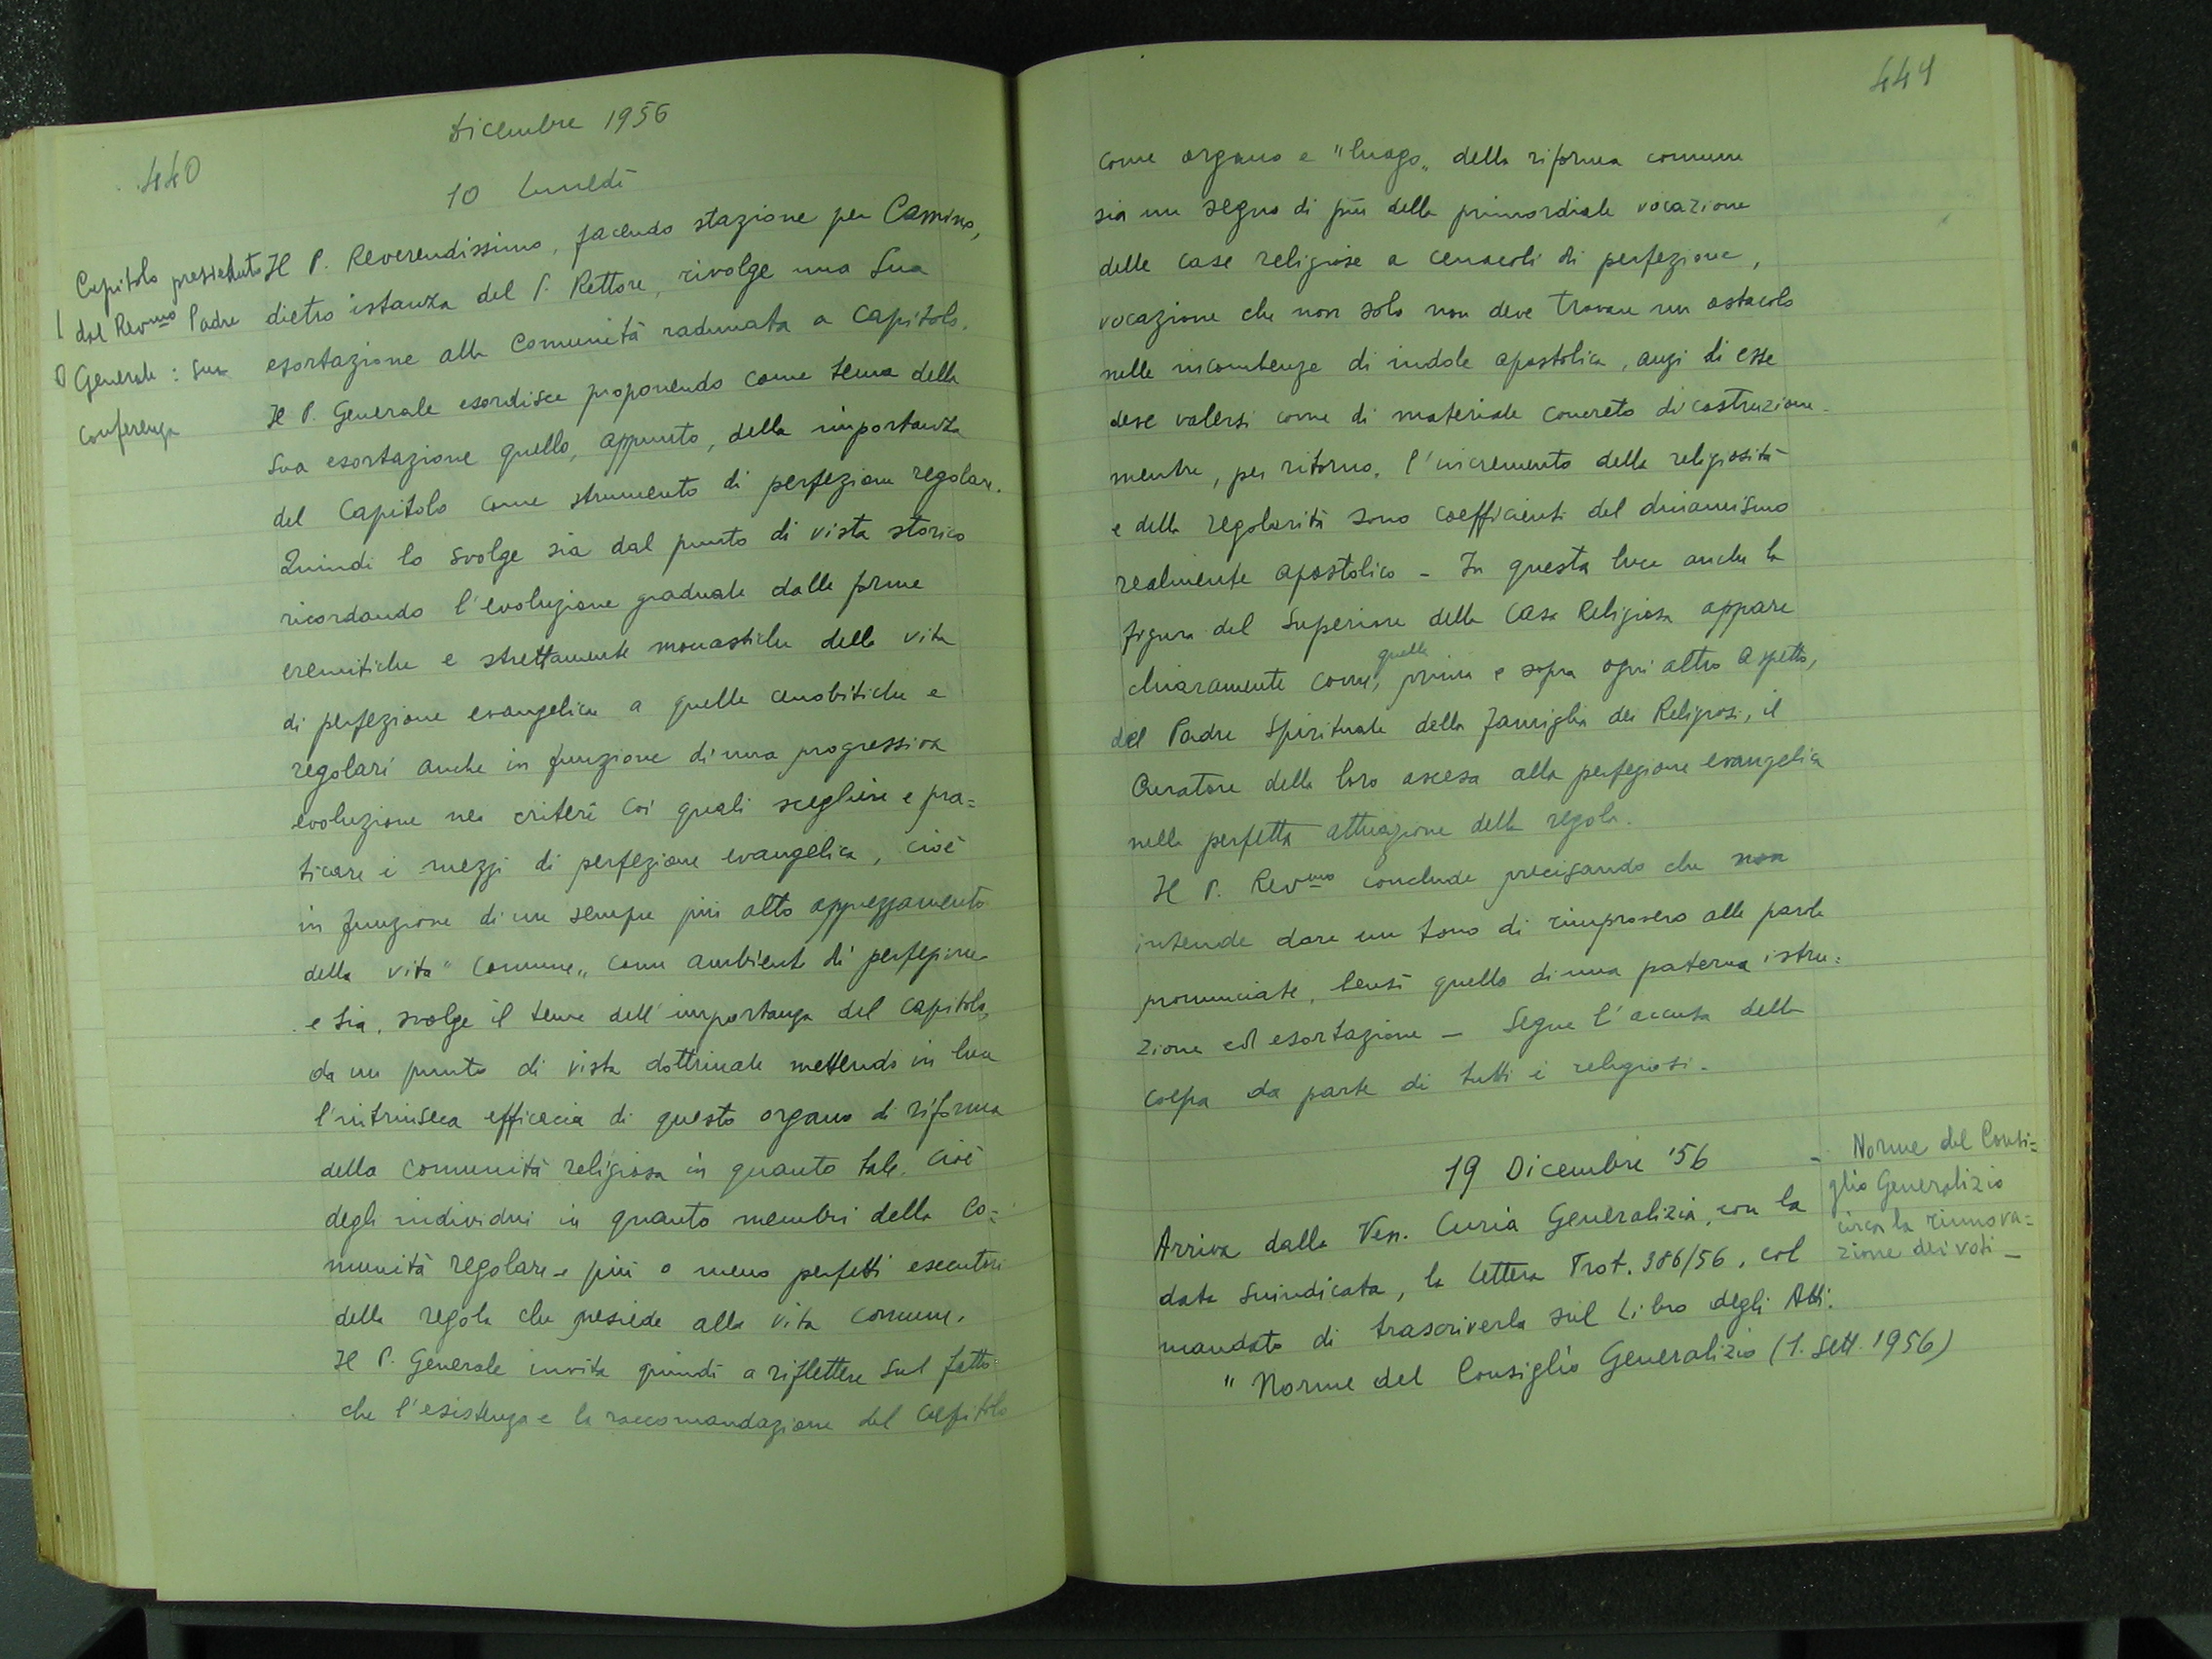 440
Dicembre 1956
10 Lunedì
Capitolo presieduto
dal Rev.mo Padre
Generale : sua
conferenza
Il P. Reverendissimo, facendo stazione per Camino,
dietro istanza del P. Rettore, rivolge una Sua
esortazione alla Comunità radunata a Capitolo.
Il P. Generale esordisce proponendo come tema della
Sua esortazione quello, appunto, della importanza
del Capitolo come strumento di perfezione regolare.
Quindi lo svolge sia dal punto di vista storico
ricordando l'evoluzione graduale dalle forme
eremitiche e strettamente monastiche della vita
di perfezione evangelica a quelle cenobitiche e
regolari anche in funzione di una progressiva
evoluzione nei criteri coi quali scegliere e pra=
ticare i mezzi di perfezione evangelica, cioè
in funzione di un sempre più alto apprezzamento
della vita "comune„ come ambiente di perfezione
e sia, svolge il tema dell'importanza del Capitolo,
da un punto di vista dottrinale mettendo in luce
l'intrinseca efficacia di questo organo di riforma
della comunità religiosa in quanto tale. cioè
degli individui in quanto membri della Co=
munità regolare e più o meno perfetti esecutori
della regola che presiede alla vita comune.
Il P. Generale invita quindi a riflettere sul fatto
che l'esistenza e la raccomandazione del Capitolo
441
come organo e "luogo„ della riforma comune
sia un segno di più della primordiale vocazione
delle case religiose a cenacoli di perfezione,
vocazione che non solo non deve trovare un ostacolo
nelle incombenze di indole apostolica, anzi di esse
deve valersi come di materiale concreto di costruzione
mentre, per ritorno, l'incremento della religiosità
e della regolarità sono coefficienti del dinamismo
realmente apostolico - In questa luce anche la
figura del Superiore della Casa Religiosa appare
chiaramente come, quella prima e sopra ogni altro aspetto,
del Padre Spirituale della famiglia dei Religiosi, il
Curatore della loro ascesa alla perfezione evangelica
nella perfetta attuazione della regola.
Il P. Rev.mo conclude precisando che non
intende dare un tono di rimprovero alle parole
pronunciate, bensì quello di una paterna istru=
zione ed esortazione - Segue l'accusa della
colpa da parte di tutti i religiosi.
19 Dicembre '56
- Norme del Consi=
glio Generalizio
circa la rinnova=
zione dei voti -
Arriva dalla Ven. Curia Generalizia, con la
data suindicata, la lettera Prot. 386/56, col
mandato di trascriverla sul Libro degli Atti.
" Norme del Consiglio Generalizio (1. Sett. 1956)